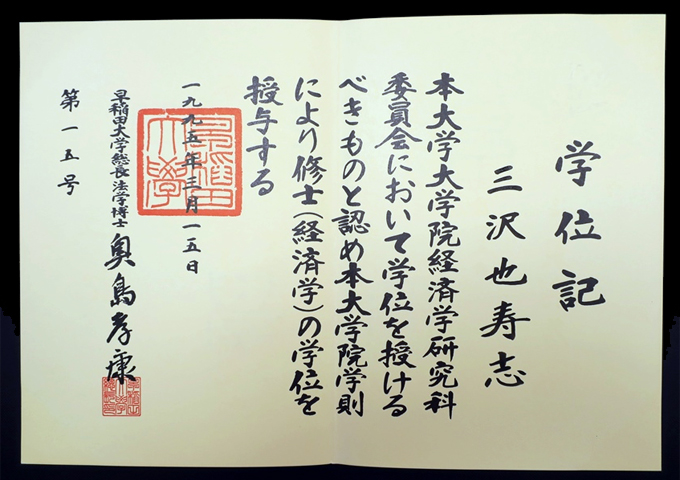 学位記
三沢也寿志
本大学大学院経済学研究科
委員会において学位を授ける
べきものと認め本大学院学則
により修士(経済学)の学位を
授与する
一九九五年三月一五日
早稲田大学
早稲田大学総長法学博士 奥島孝康
第一五号